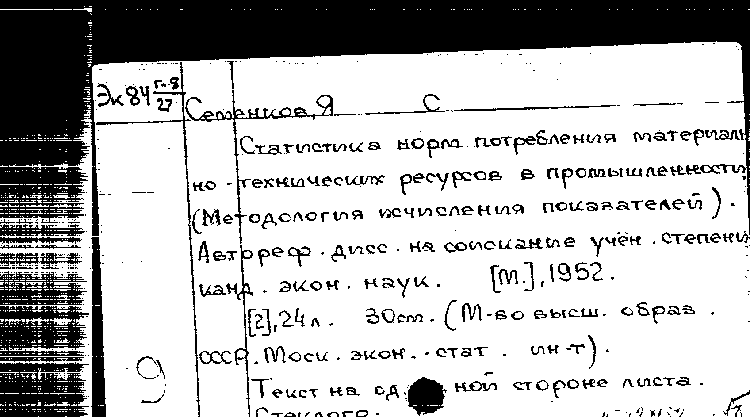 Эк84 г-8/27
Семенков, Я С
Статистика норм потребления материаль
но-технических ресурсов в промышленности
(Методология исчисления показателей).
Автореф. дисс. на соискание учён. степени
канд. экон. наук. [М.], 1952.
[2], 24 л. 30 см. (М-во высш. образ.
СССР. Моск. экон.-стат. ин-т).
9
Текст на од ной стороне листа.
Стеклогр.